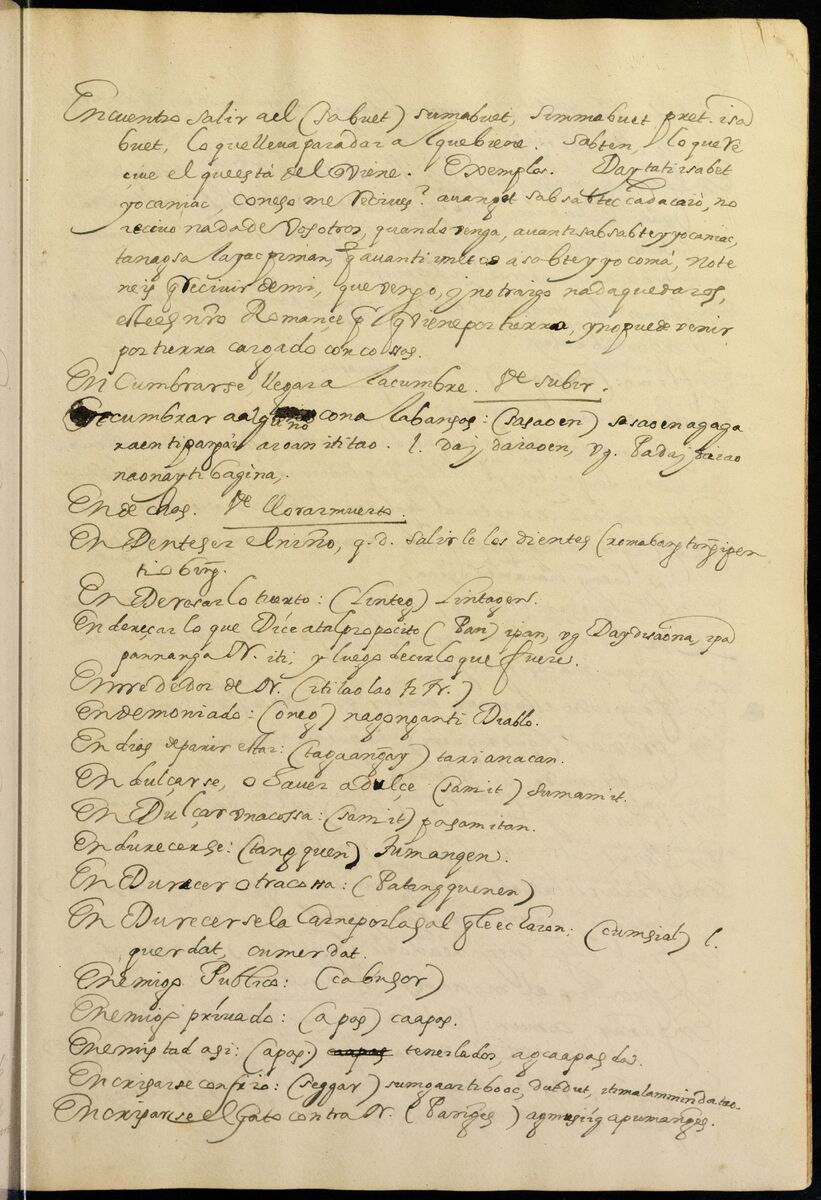 Encuentro salir a el (sabuet) sumabuet, simmabuet pret. isa
buet, lo que lleva para dar a l que biene. sabten, lo que re
çiue el que está del viene. Exemplos. Daytati isabet
yocaniac, con eso me recives? auanget sab sabtec cadacaiò, no
reciuo nada de vosotros, quando venga, auanti sabsabteyyocaniac,
tangosa layac piman, q̃ auanti a sabteyyo comá, no te
neis q̃ recivir de mi, que vengo, y no traigo nada que daros,
este es nr̃o Romançe pª el q̃ viene por tierra, y no puede venir
por tierra cargado con cossas.
En Cumbrarse, llegar a la cumbre. Vᵉ subir.
Encumbrar a alguno con alabansas: (sasaoen) sasaoenagaga
l. vg.
naonayti bagina,.
En de chas. Vᵉ llorar muerto.
En Denteser el niño, q. d. salirle los dientes
En Deresar lo tuerto: (Linteg) Lintagens.
En dereçar lo que Diçe a tal propocito (Pan) ipan, vg Daydisaona, ipa
pannanga N. iti, y luego decir lo que fuere.
Enrrededor de N. (itilaolao ti N.)
Endemoniado: (oneg) nagonganti Diablo.
En dias de parir estar: (tagaangay) taxianacan.
En dulçarse, o hauer adulçe (samit) sumamit.
En Dulçar vna cossa: (samit) pasamitan.
En durecerse: (tangquen) tumangen.
En Durecer otra cossa: (Patangquenen)
En Durecerse la Carne por la sal q̃ le echaron: (cumsial) l.
querdat, cumerdat.
Enemigo Publico: (cabusor)
Enemigo priuado: (apos) caapos.
Enemistad asi: (apos) caapos tenerla dos, agcaapos da.
En crisparse con frio: (seggar) sumgaartibooc, dutdut,
En criparse el Gato contra N. (Panges) apumanges.